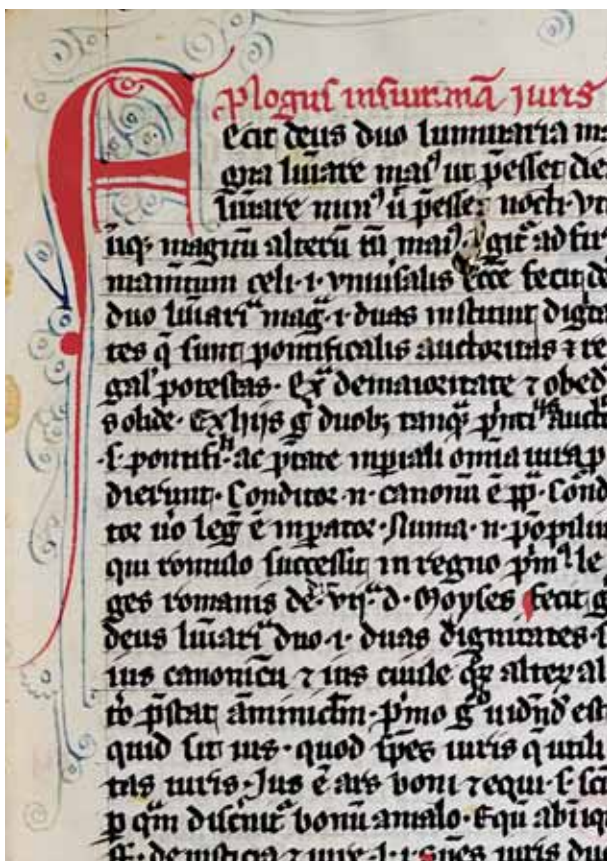 Plogus in summā juris
Fecit deus duo luminaria ma
gna lūiare mai⁹ ut p̄esset diei
lūiare min⁹ ū p̄esset nocti·
ūq; magnū alterū tn̄ mai⁹· Igit̄ ad fir
mamentum celi·i· vniu̓salis ecc̄e fecit d
duo lūiari mag̓·i· duas instituit dignita
tes q̄ sunt pontificalis auctoritas ⁊ re
gal̓ potestas· Ex̄ de maioritate ⁊ obed
solide· Ex hijs g̓ duob; tanq̓ p̓nci auct
·ſ· pontifi· ac p̄tate inp̓iali om̄ia iura p
dierunt· Conditor·n· canonū ē pp̄· Cōnd
tor u̓o leg̓ ē inp̓ator· Numa·n· pōpiliu
qui romulo successit in regno p̓m⁹ le
ges romanis de· vij· d· Moyses fecit g̓
deus lūiari duo·i· duas dignitates·
ius canonicū ⁊ ius ciuile q̓ alter al
to p̄stat āminic̄lm· p̓mo g̓ uidn̄d̄ est
quid sit ius· quod sp̄es iuris q̓ utili
tas iuris· Jus ē ars boni ⁊ equi·ſ· sci
p qm̄ discnit̓ bonū a malo· Eqū ab iniq
ff· de iusticia ⁊ iure l·i· iuris du